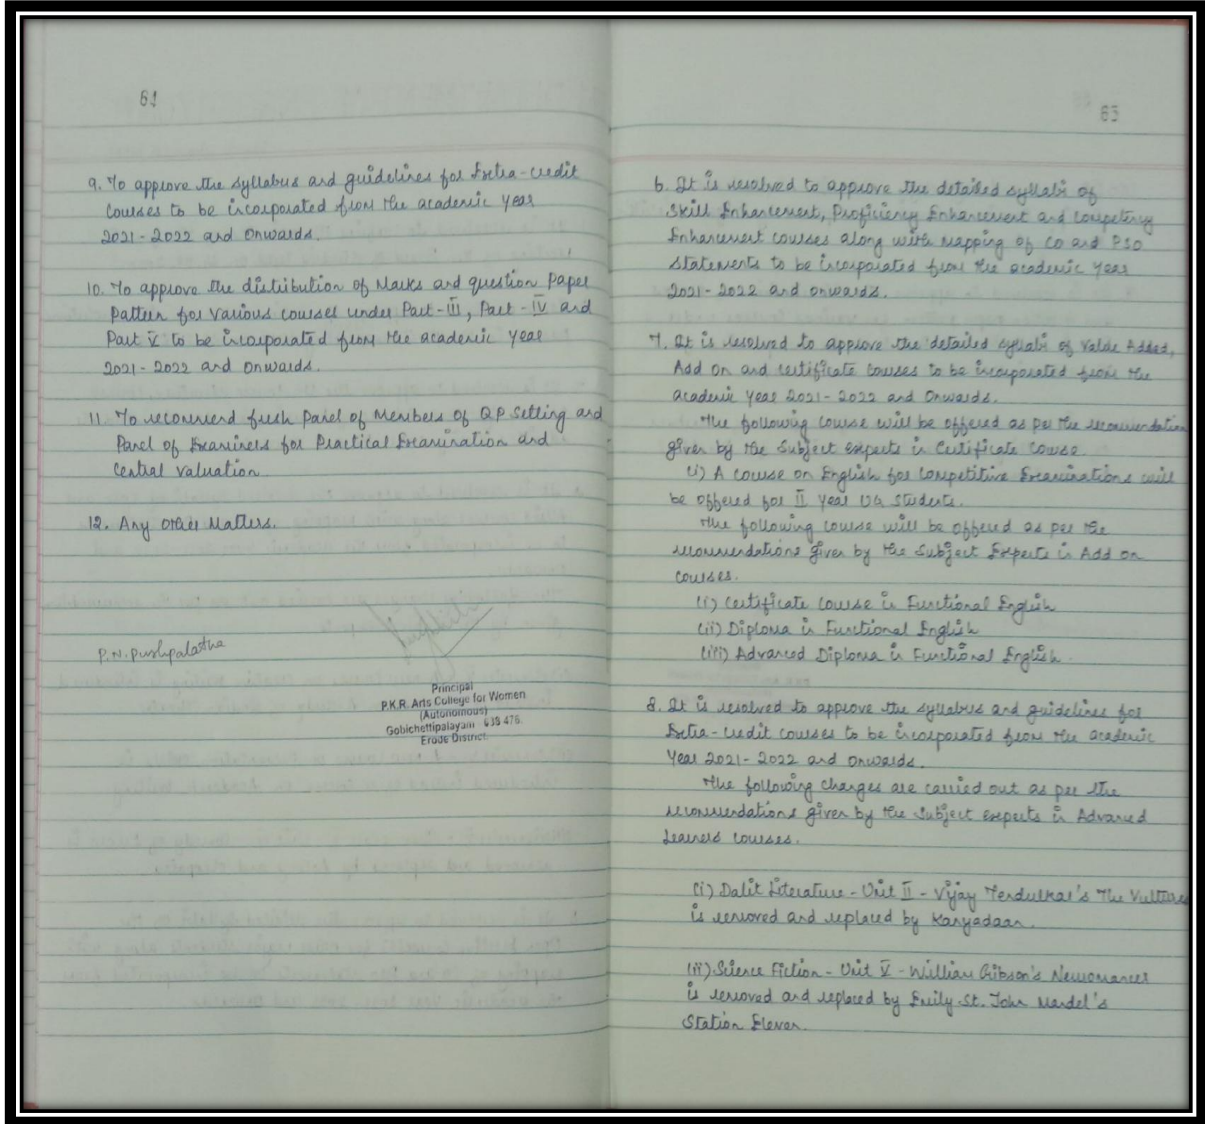 61
9. To approve the syllabus and guidelines for Extra-credit
Courses to be incorporated from the academic year
2021-2022 and Onwards.
10. To approve the distribution of Marks and question Paper
Pattern for various courses under Part-III, Part-IV and
Part V to be incorporated from the academic year
2021-2022 and Onwards.
11. To recommend fresh Panel of Members of QP Setting and
Panel of Examiners for Practical Examination and
Central Valuation
12. Any Other Matters.
P.N. Pushpalatha
Principal
P.K.R. Arts College for Women
(Autonomous)
Gobichettipalayam 638 476.
Erode District.
63
6. It is resolved to approve the detailed syllabi of
Skill Enhancement, Proficiency Enhancement and Competency
Enhancement courses along with Mapping of CO and PSO
Statements to be incorporated from the academic year
2021-2022 and onwards.
7. It is resolved to approve the detailed syllabi of Value Added,
Add On and certificate courses to be incorporated from the
academic year 2021-2022 and Onwards.
The following course will be offered as per the recommendation
given by the Subject experts in Certificate Course.
(i) A course on English for Competitive Examinations will
be offered for II Year UG Students.
The following course will be offered as per the
recommendations given by the Subject Experts in Add on
courses.
(i) Certificate Course in Functional English
(ii) Diploma in Functional English
(iii) Advanced Diploma in Functional English.
8. It is resolved to approve the syllabus and guidelines for
Extra-credit courses to be incorporated from the academic
Year 2021-2022 and onwards.
The following changes are carried out as per the
recommendations given by the Subject experts in Advanced
Learners Courses.
(i) Dalit Literature - Unit II - Vijay Tendulkar's The Vultures
is removed and replaced by Kanyadaan.
(ii) Science Fiction - Unit V - William Gibson's Neuromancer
is removed and replaced by Emily St. John Mandel's
Station Eleven.